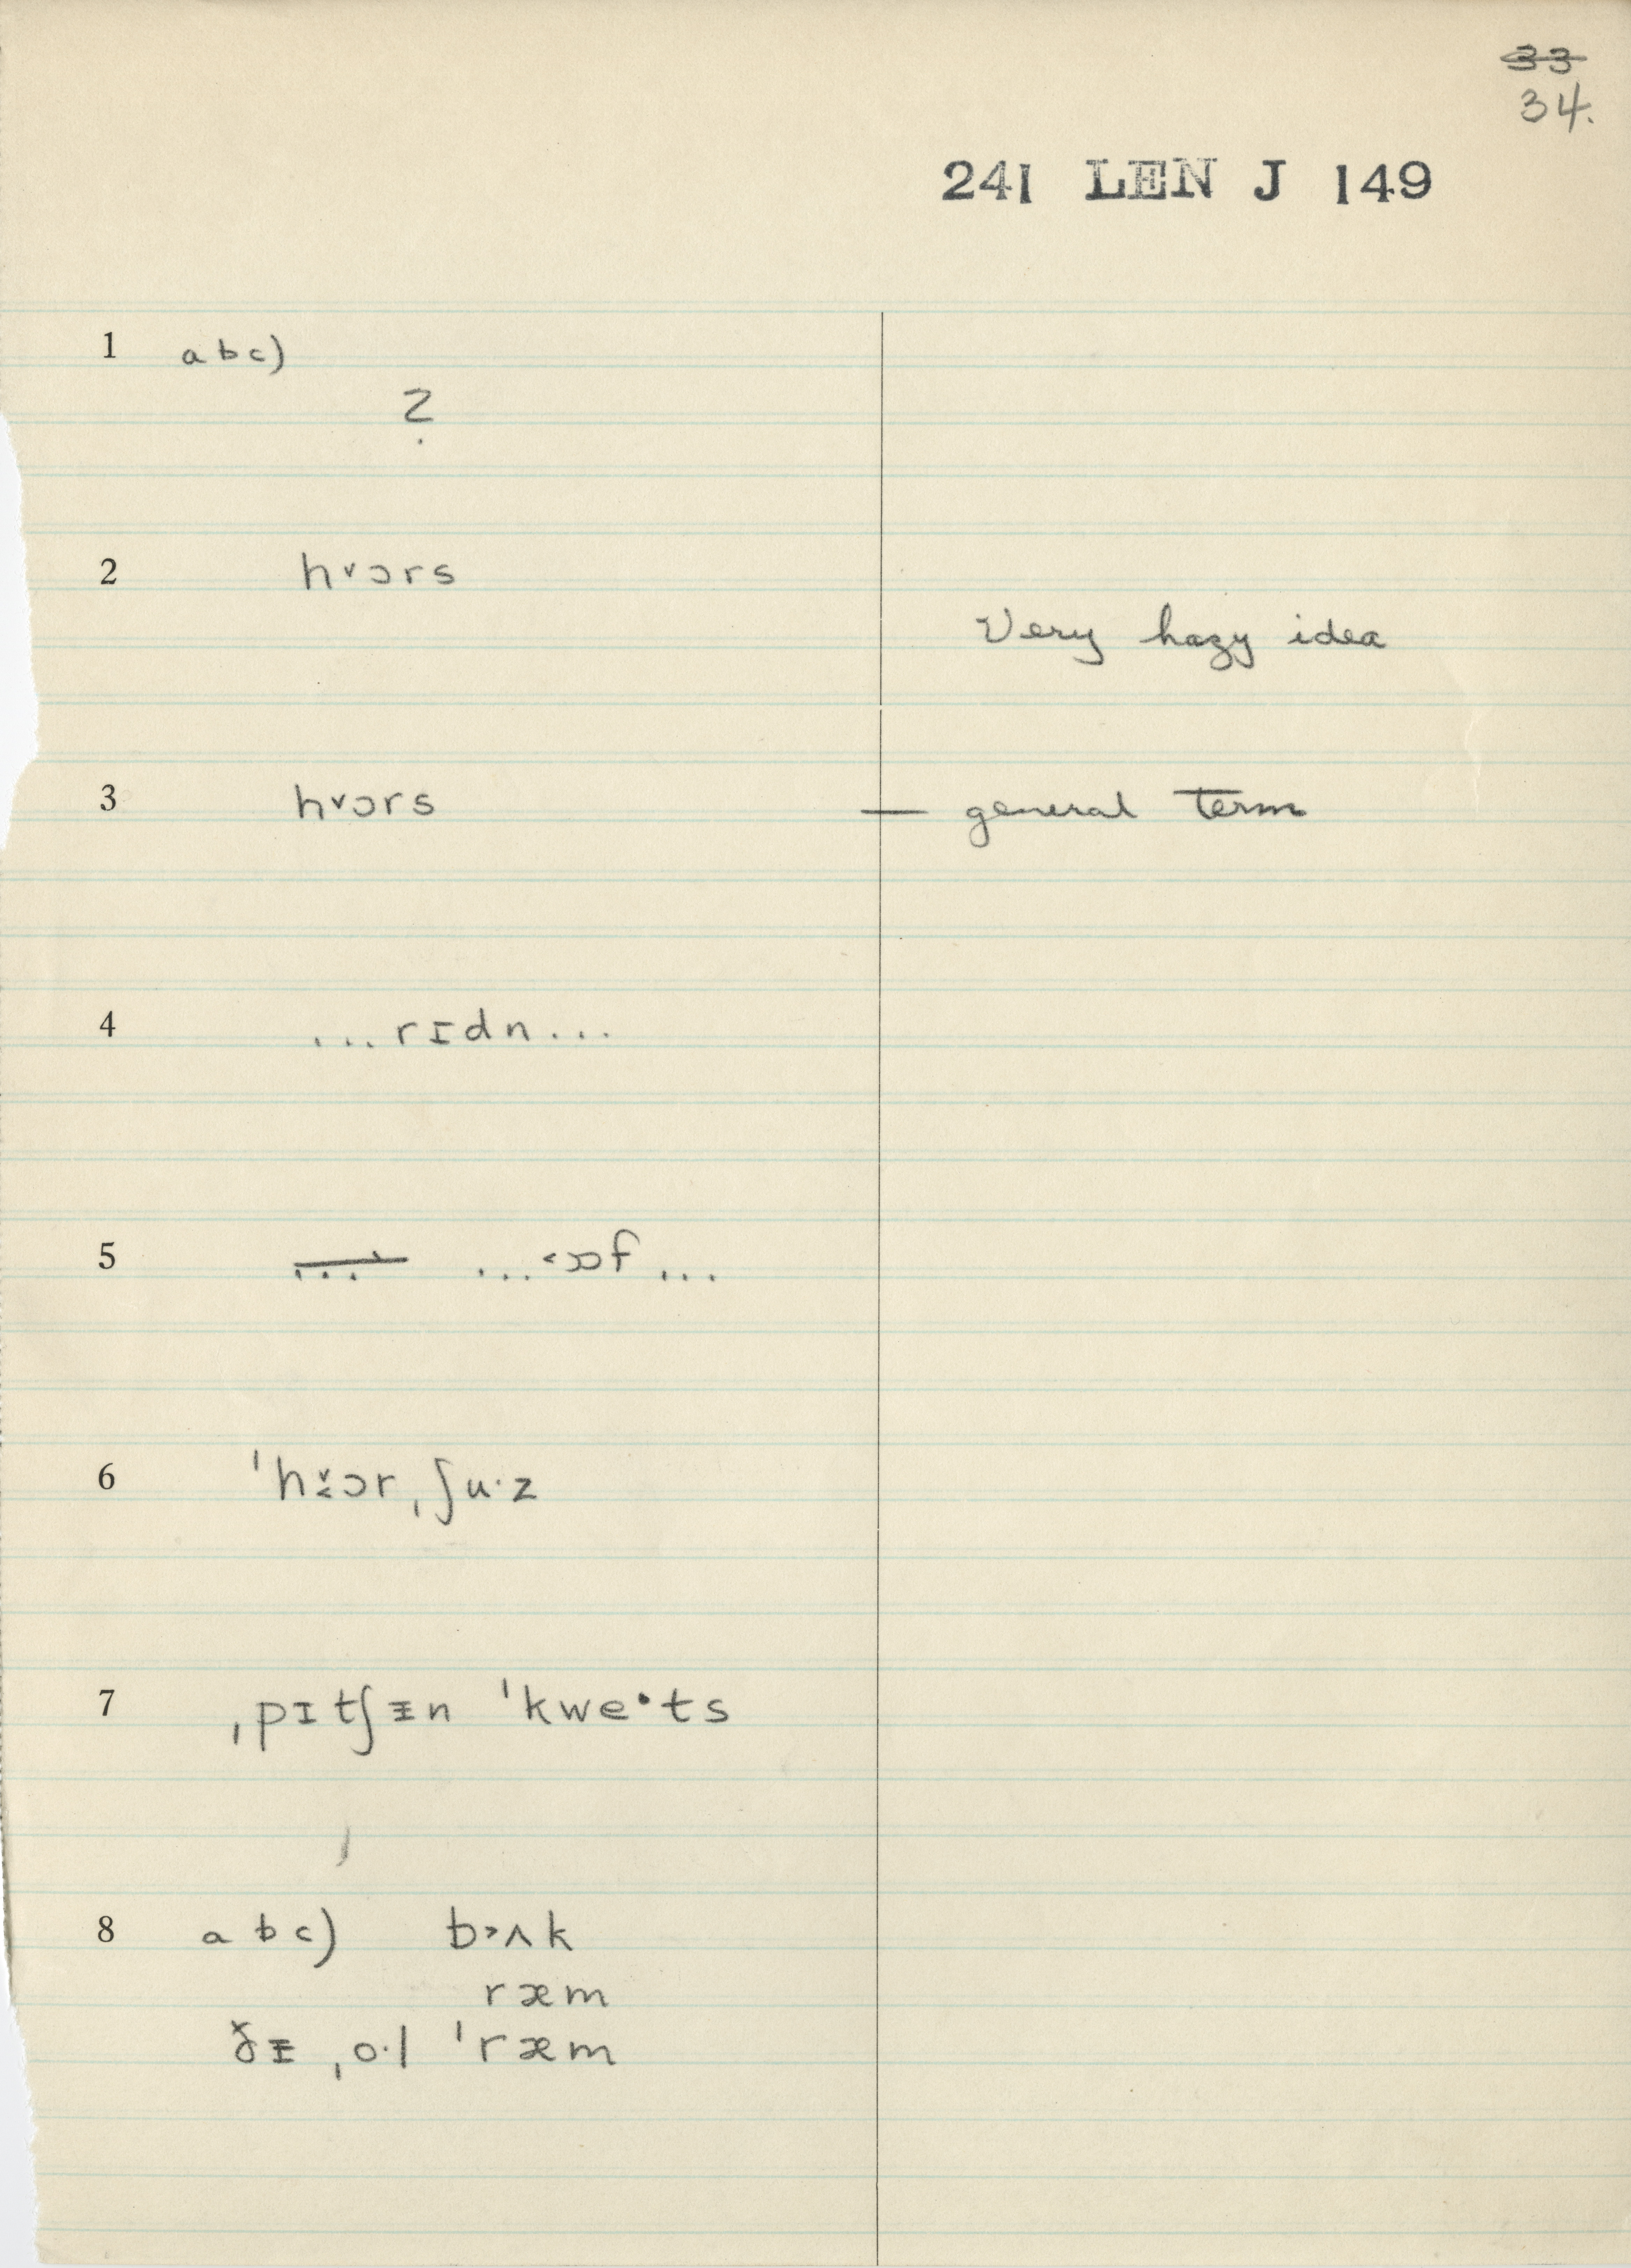 ~~33~~
34.
241 LEN J 149
1 abc)
?
2 h˅ɔrs
Very hazy idea
3 h˅ɔrs — general term
4 ...rɪdn...
5 ~~...~~ ...˂ɒf...
6 ˈh˅˂ɔr ˌʃu·z
7 ˌpɪtʃᵻn ˈkwe·ts
8 abc) b˃ʌk
ræm
ðᵻ ˌo·l ˈræm